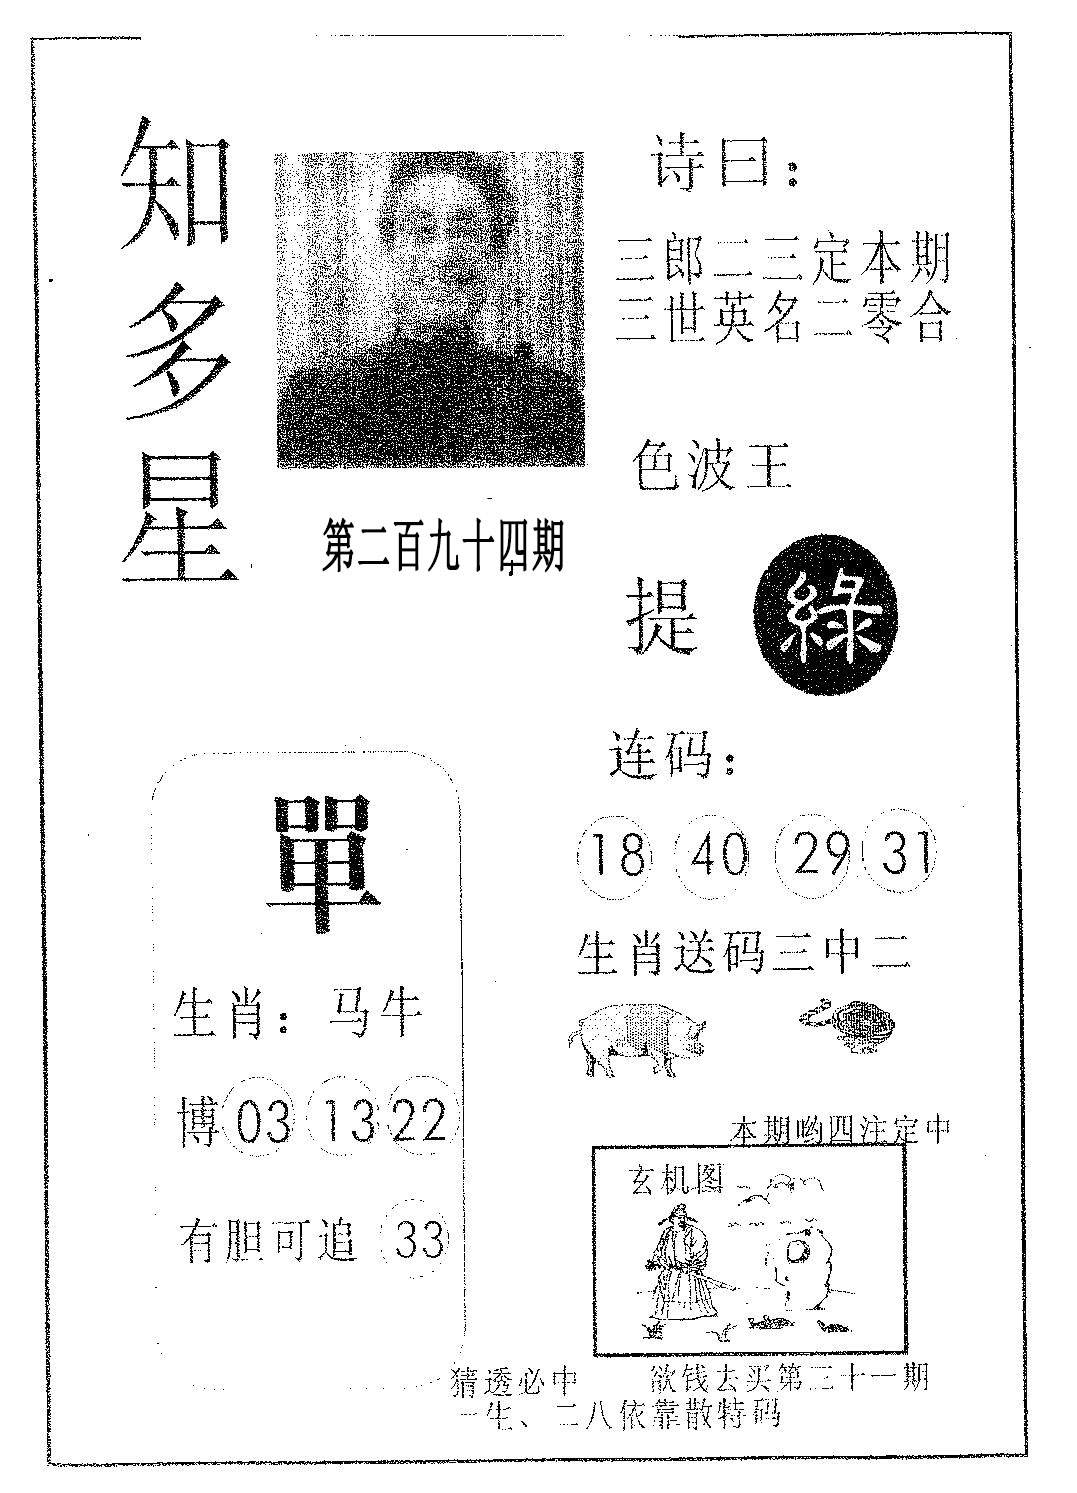 知多星
诗曰：
三郎二三定本期
三世英名二零合
色波王
第二百九十四期
提 綠
连码：
18 40 29 31
生肖送码三中二
單
生肖：马牛
博 03 13 22
有胆可追 33
本期哟四注定中
玄机图
猜透必中 欲钱去买第三十一期
一生、二八依靠散特码